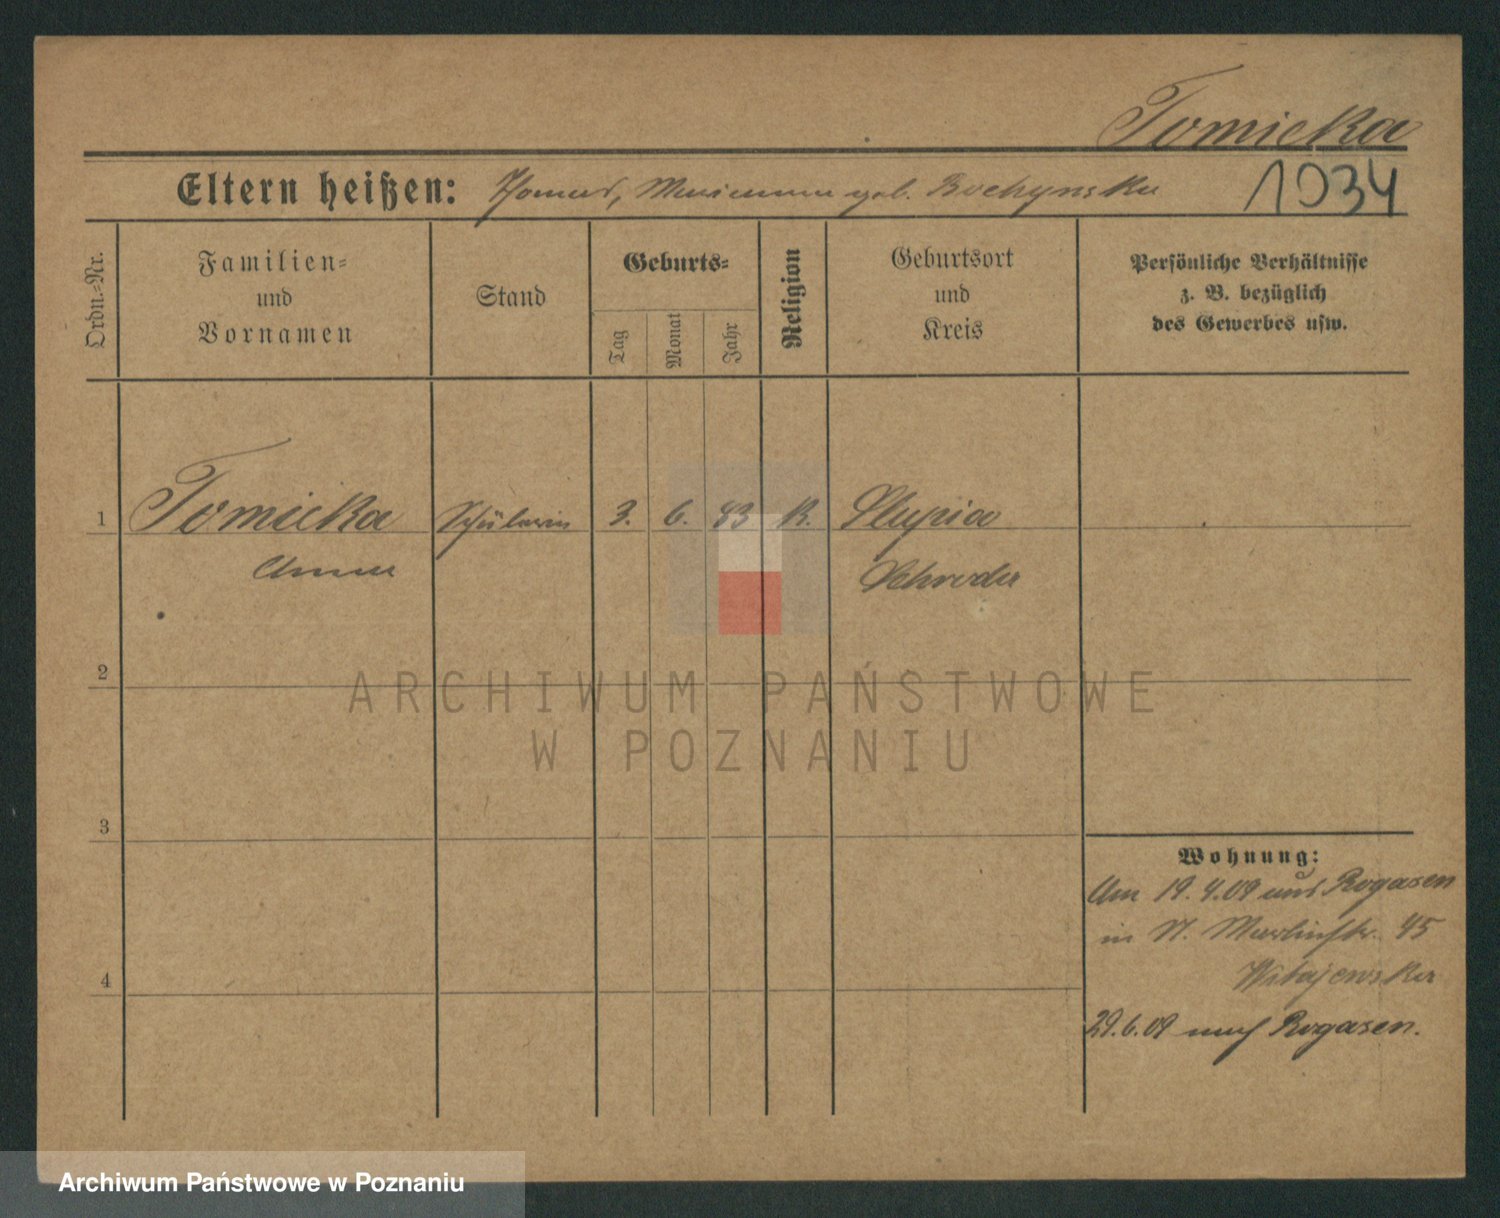 Tomicka
Eltern heißen: Thomas, Marianna geb. Bochynska 1034
Ordn.-Nr.
Familien-
und
Vornamen
Stand
Geburts-
Tag
Monat
Jahr
Religion
Geburtsort
und
Kreis
Persönliche Verhältnisse
z. B. bezüglich
des Gewerbes usw.
1 Tomicka Schülerin 3. 6. 83 K. Slupia
Anna Schroda
2
3
4
Wohnung:
Am 19.4.09 aus Rogasen
in St. Martinstr. 45
29.6.09 nach Rogasen.
ARCHIWUM PAŃSTWOWE
W POZNANIU
Archiwum Państwowe w Poznaniu